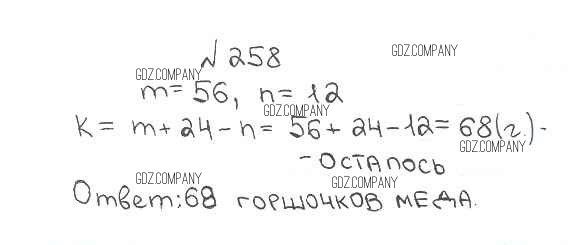 № 258
GDZ.COMPANY
GDZ.COMPANY
m = 56, n = 12
GDZ.COMPANY
K = m + 24 - n = 56 + 24 - 12 = 68 (г.) -
GDZ.COMPANY
- осталось
GDZ.COMPANY
GDZ.COMPANY
Ответ: 68 горшочков меда.